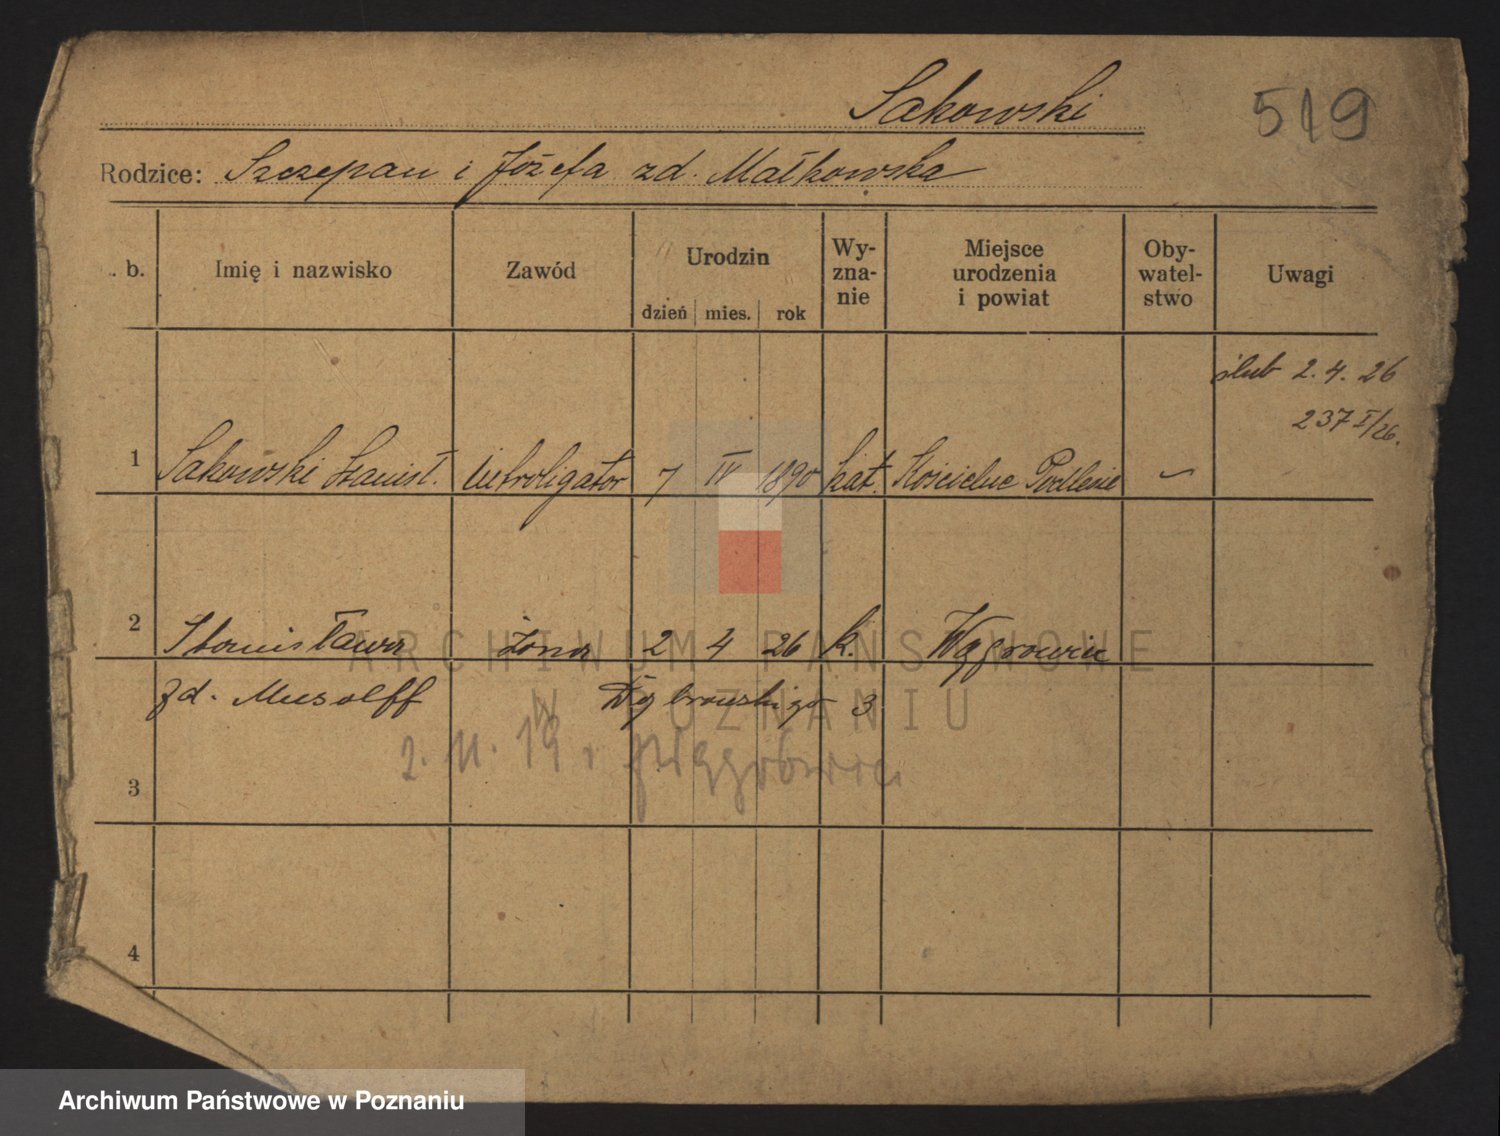 Sakowski
519
Rodzice: Szczepan i Józefa zd. Małkowska
. b. Imię i nazwisko Zawód Urodzin dzień mies. rok Wy-zna-nie Miejsce urodzenia i powiat Oby-watel-stwo Uwagi
ślub 2. 4. 26
237 I/26.
1 Sakowski Stanisł. introligator 7 IV 1890 kat. Kościelne
2 Stanisława żona 2 4 26 k. Wągrowiec
zd. Musolff Dąbrowskiego 3
2. 11. 19
3
4
ARCHIWUM PAŃSTWOWE
W POZNANIU
Archiwum Państwowe w Poznaniu